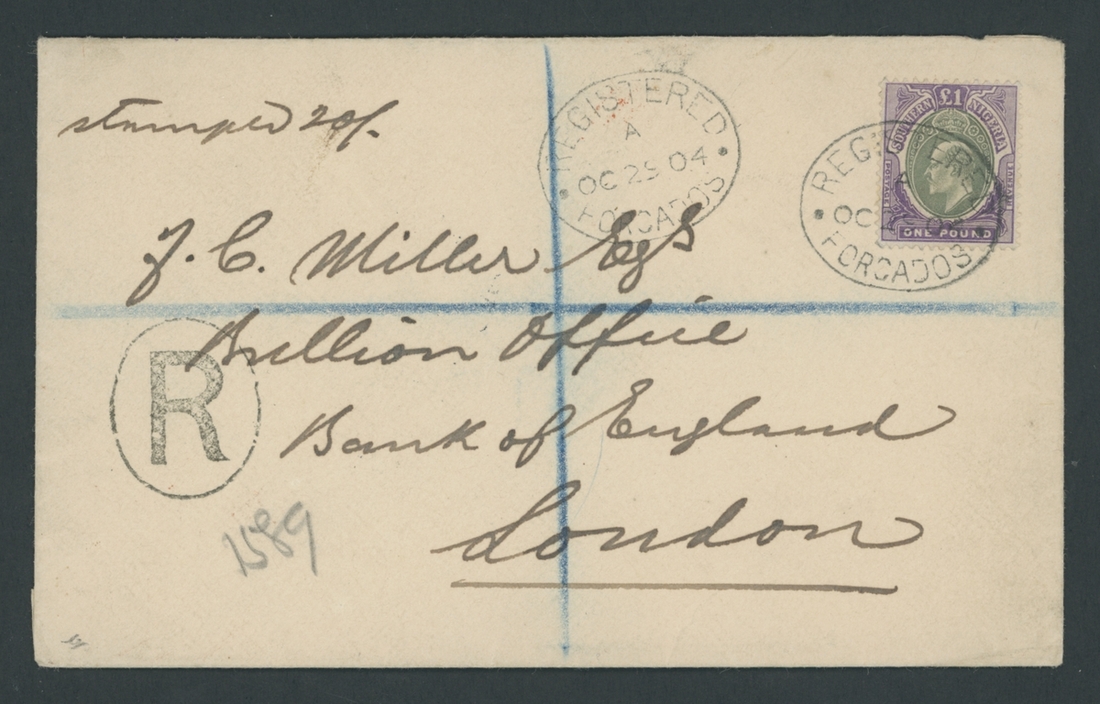 stamped 20/-
REGISTERED
A
OC 25 04
FORCADOS
SOUTHERN £1 NIGERIA
POSTAGE
ONE POUND
FORCADOS
J. C. Miller Esqs
Bullion Office
R
Bank of England
London
1589